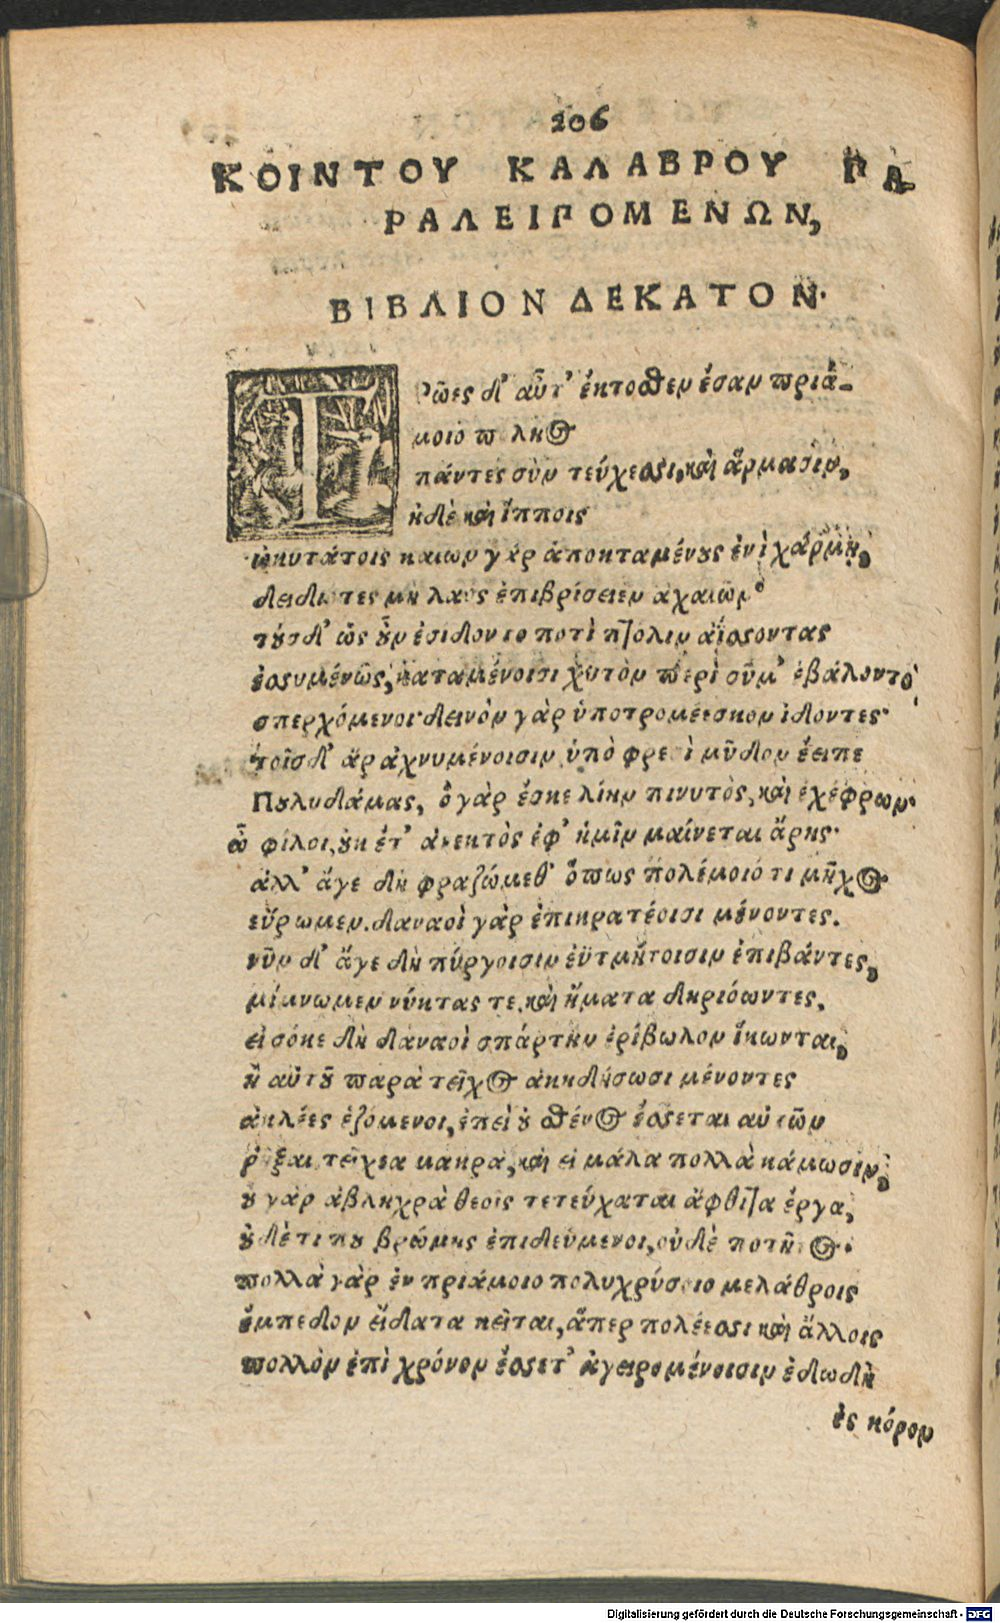 206
ΚΟΙΝΤΟΥ ΚΑΛΑΒΡΟΥ ΠΑ-
ΡΑΛΕΙΠΟΜΕΝΩΝ,
ΒΙΒΛΙΟΝ ΔΕΚΑΤΟΝ.
Τρῶες δ' αὖτ' ἔκτοσθεν ἔσαν πριά-
μοιο πόληος
πάντες σὺν τεύχεσσι, καὶ ἅρμασιν,
ἠδὲ καὶ ἵπποις
ὠκυτάτοις καιων γὰρ ἀποκταμένους ἐνὶ χάρμῃ,
δειδιότες μὴ λαὸς ἐπιβρίσειεν ἀχαιῶν·
τοὺς δ' ὡς οὖν ἐσίδοντο ποτὶ πτόλιν ἀΐσσοντας
ἐσσυμένως, καταμένοισι χυτὸν περὶ σῆμ' ἐβάλοντο
σπερχόμενοι· δεινὸν γὰρ ὑποτρομέεσκον ἰδόντες·
τοῖς δ' ἄρ ἀχνυμένοισιν ὑπὸ φρεσὶ μῦθον ἔειπε
Πουλυδάμας, ὁ γὰρ ἔσκε λίην πινυτὸς, καὶ ἐχέφρων·
ὦ φίλοι, οὐκ ἔτ' ἀνεκτὸς ἐφ' ἡμῖν μαίνεται ἄρης·
ἀλλ' ἄγε δὴ φραζώμεθ' ὅπως πολέμοιό τι μῆχος
εὕρωμεν. δαναοὶ γὰρ ἐπικρατέοισι μένοντες.
νῦν δ' ἄγε δὴ πύργοισιν ἐϋτμήτοισιν ἐπιβάντες,
μίμνωμεν νύκτας τε, καὶ ἤματα δηριόωντες,
εἰσόκε δὴ δαναοὶ σπάρτην ἐρίβωλον ἵκωνται,
ἢ αὐτοῦ παρὰ τεῖχος ἀκηδήσωσι μένοντες
ἀκλέες ἑζόμενοι, ἐπεὶ οὐ σθένος ἔσσεται αὐτῶν
ῥῆξαι τείχεα μακρὰ, καὶ εἰ μάλα πολλὰ κάμωσιν,
οὐ γὰρ ἀβληχρὰ θεοῖς τετεύχαται ἄφθιτα ἔργα,
οὐδέ τί που βρώμης ἐπιδευόμενοι, οὐδὲ ποτῆτος.
πολλὰ γὰρ ἐν πριάμοιο πολυχρύσοιο μελάθροις
ἔμπεδον εἴδατα κεῖται, ἅπερ πολέεσσι καὶ ἄλλοις
πολλὸν ἐπὶ χρόνον ἔσσετ' ἀγειρομένοισιν ἐδωδὴ
ἐς κόρον
Digitalisierung gefördert durch die Deutsche Forschungsgemeinschaft - DFG